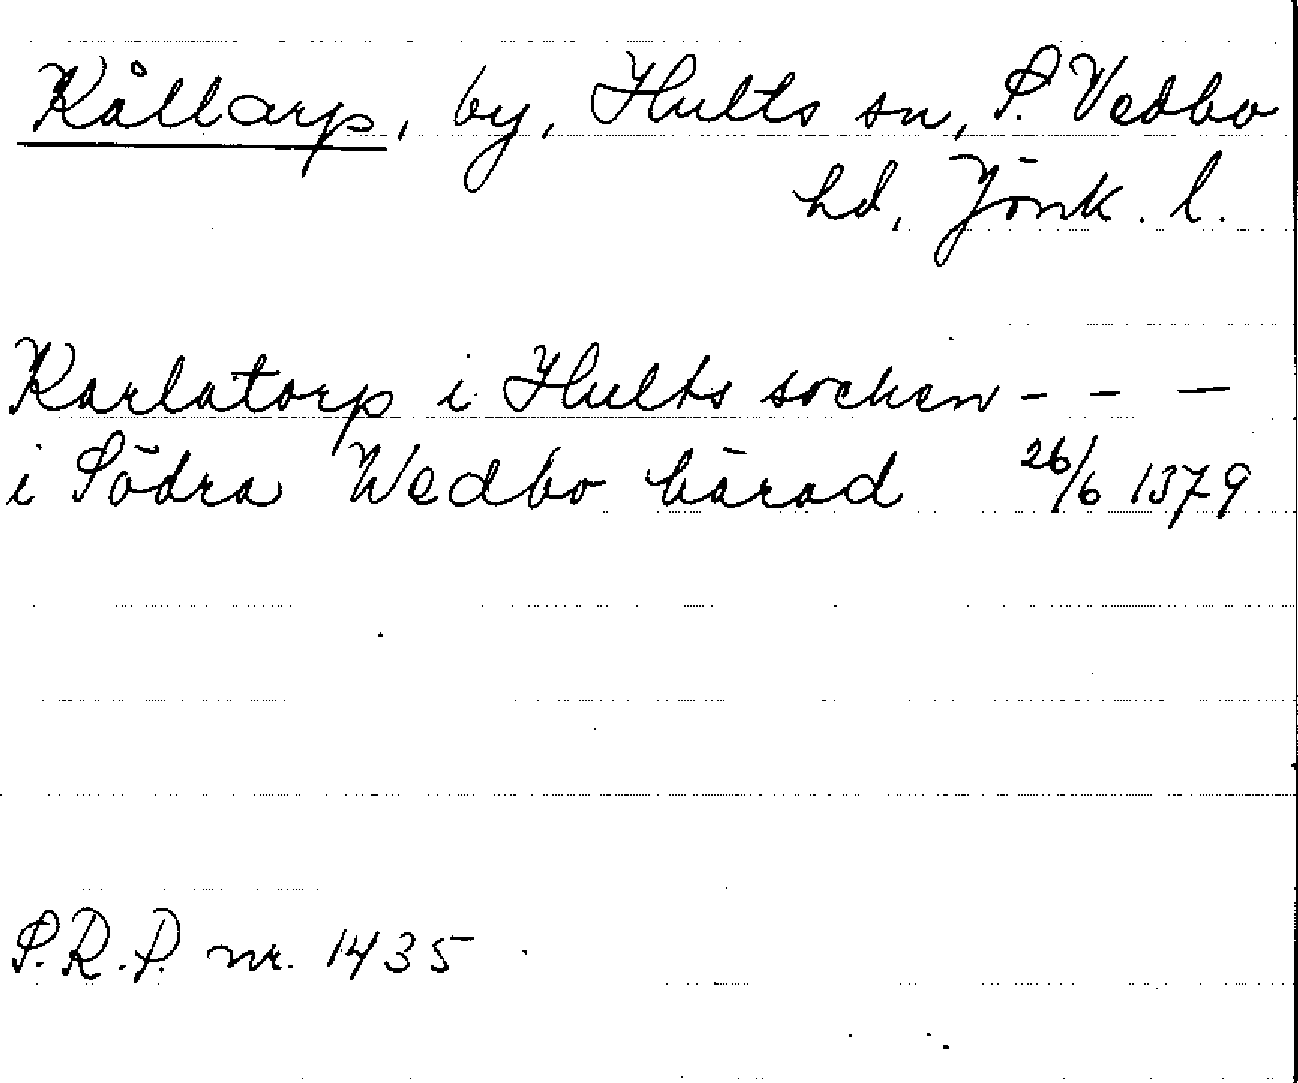 Kållarp, by, Hults sn, S. Vedbo
hd, Jönk. l.
Karlatorp i Hults socken - - -
i Södra Wedbo härad 26/6 1379
S.R.P. nr. 1435